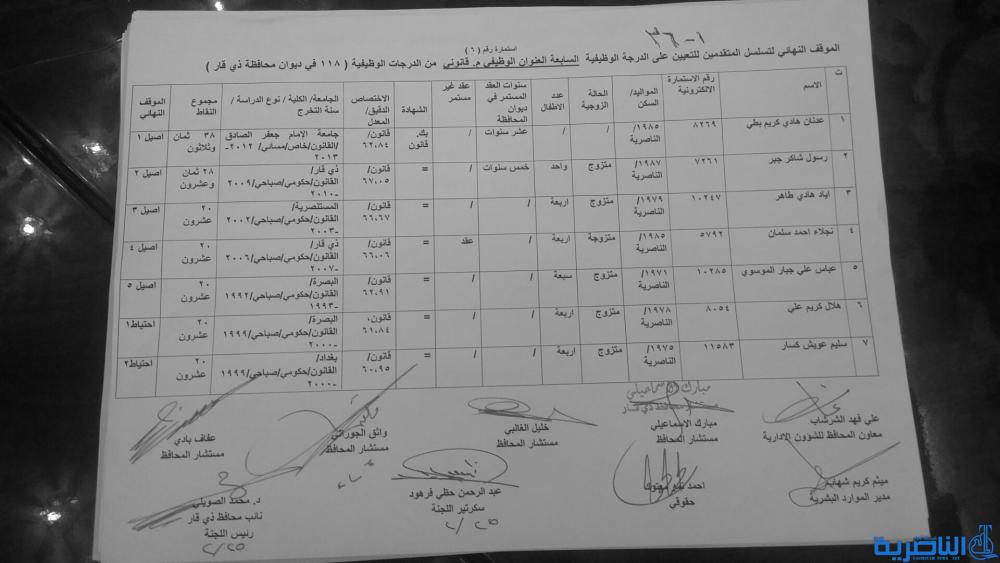 ٣٦-١
استمارة رقم ( ٦ )
الموقف النهائي لتسلسل المتقدمين للتعيين على الدرجة الوظيفية السابعة العنوان الوظيفي م. قانوني من الدرجات الوظيفية ( ١١٨ في ديوان محافظة ذي قار )
ت | الاسم | رقم الاستمارة الالكترونية | المواليد/ السكن | الحالة الزوجية | عدد الاطفال | سنوات العقد المستمر في ديوان المحافظة | عقد غير مستمر | الشهادة | الاختصاص الدقيق/ المعدل | الجامعة/ الكلية / نوع الدراسة / سنة التخرج | مجموع النقاط | الموقف النهائي
١ | عدنان هادي كريم بطي | ٨٢٦٩ | ١٩٨٥/ الناصرية | / | / | عشر سنوات | / | بك. قانون | قانون/ ٦٢،٨٤ | جامعة الإمام جعفر الصادق /القانون/خاص/مسائي/ ٢٠١٢-٢٠١٣ | ٣٨ ثمان وثلاثون | اصيل ١
٢ | رسول شاكر جبر | ٧٢٦١ | ١٩٨٧/ الناصرية | متزوج | واحد | خمس سنوات | / | = | قانون/ ٦٧،٠٥ | ذي قار/ القانون/حكومي/صباحي/٢٠٠٩-٢٠١٠ | ٢٨ ثمان وعشرون | اصيل ٢
٣ | اياد هادي طاهر | ١٠٢٤٧ | ١٩٧٩/ الناصرية | متزوج | اربعة | / | / | = | قانون/ ٦٦،٦٧ | المستنصرية/ القانون/حكومي/صباحي/٢٠٠٢-٢٠٠٣ | ٢٠ عشرون | اصيل ٣
٤ | نجلاء احمد سلمان | ٥٧٩٢ | ١٩٨٥/ الناصرية | متزوجة | اربعة | / | عقد | = | قانون/ ٦٦،٠٦ | ذي قار/ القانون/حكومي/صباحي/٢٠٠٦-٢٠٠٧ | ٢٠ عشرون | اصيل ٤
٥ | عباس علي جبار الموسوي | ١٠٢٨٥ | ١٩٧١/ الناصرية | متزوج | سبعة | / | / | = | قانون/ ٦٢،٩١ | البصرة/ القانون/حكومي/صباحي/١٩٩٢-١٩٩٣ | ٢٠ عشرون | اصيل ٥
٦ | هلال كريم علي | ٨٠٥٤ | ١٩٧٨/ الناصرية | متزوج | اربعة | / | / | = | قانون، ٦١،٨٤ | البصرة/ القانون/حكومي/صباحي/١٩٩٩-٢٠٠٠ | ٢٠ عشرون | احتياط١
٧ | سليم عويش كسار | ١١٥٨٣ | ١٩٧٥/ الناصرية | متزوج | اربعة | / | / | = | قانون/ ٦٠،٩٥ | بغداد/ القانون/حكومي/صباحي/١٩٩٩-٢٠٠٠ | ٢٠ عشرون | احتياط٢
علي فهد الشرشاب
معاون المحافظ للشؤون الادارية
مبارك الاسماعيلي
مستشار محافظ ذي قار
مبارك الاسماعيلي
مستشار المحافظ
خليل الغالبي
مستشار المحافظ
واثق الجوراني
مستشار المحافظ
عفاف بادي
مستشار المحافظ
ميثم كريم شهاب
مدير الموارد البشرية
احمد
حقوقي
عبد الرحمن حظي فرهود
سكرتير اللجنة
٢/٢٥
د. محمد الصويلي
نائب محافظ ذي قار
رئيس اللجنة
٢/٢٥
الناصرية